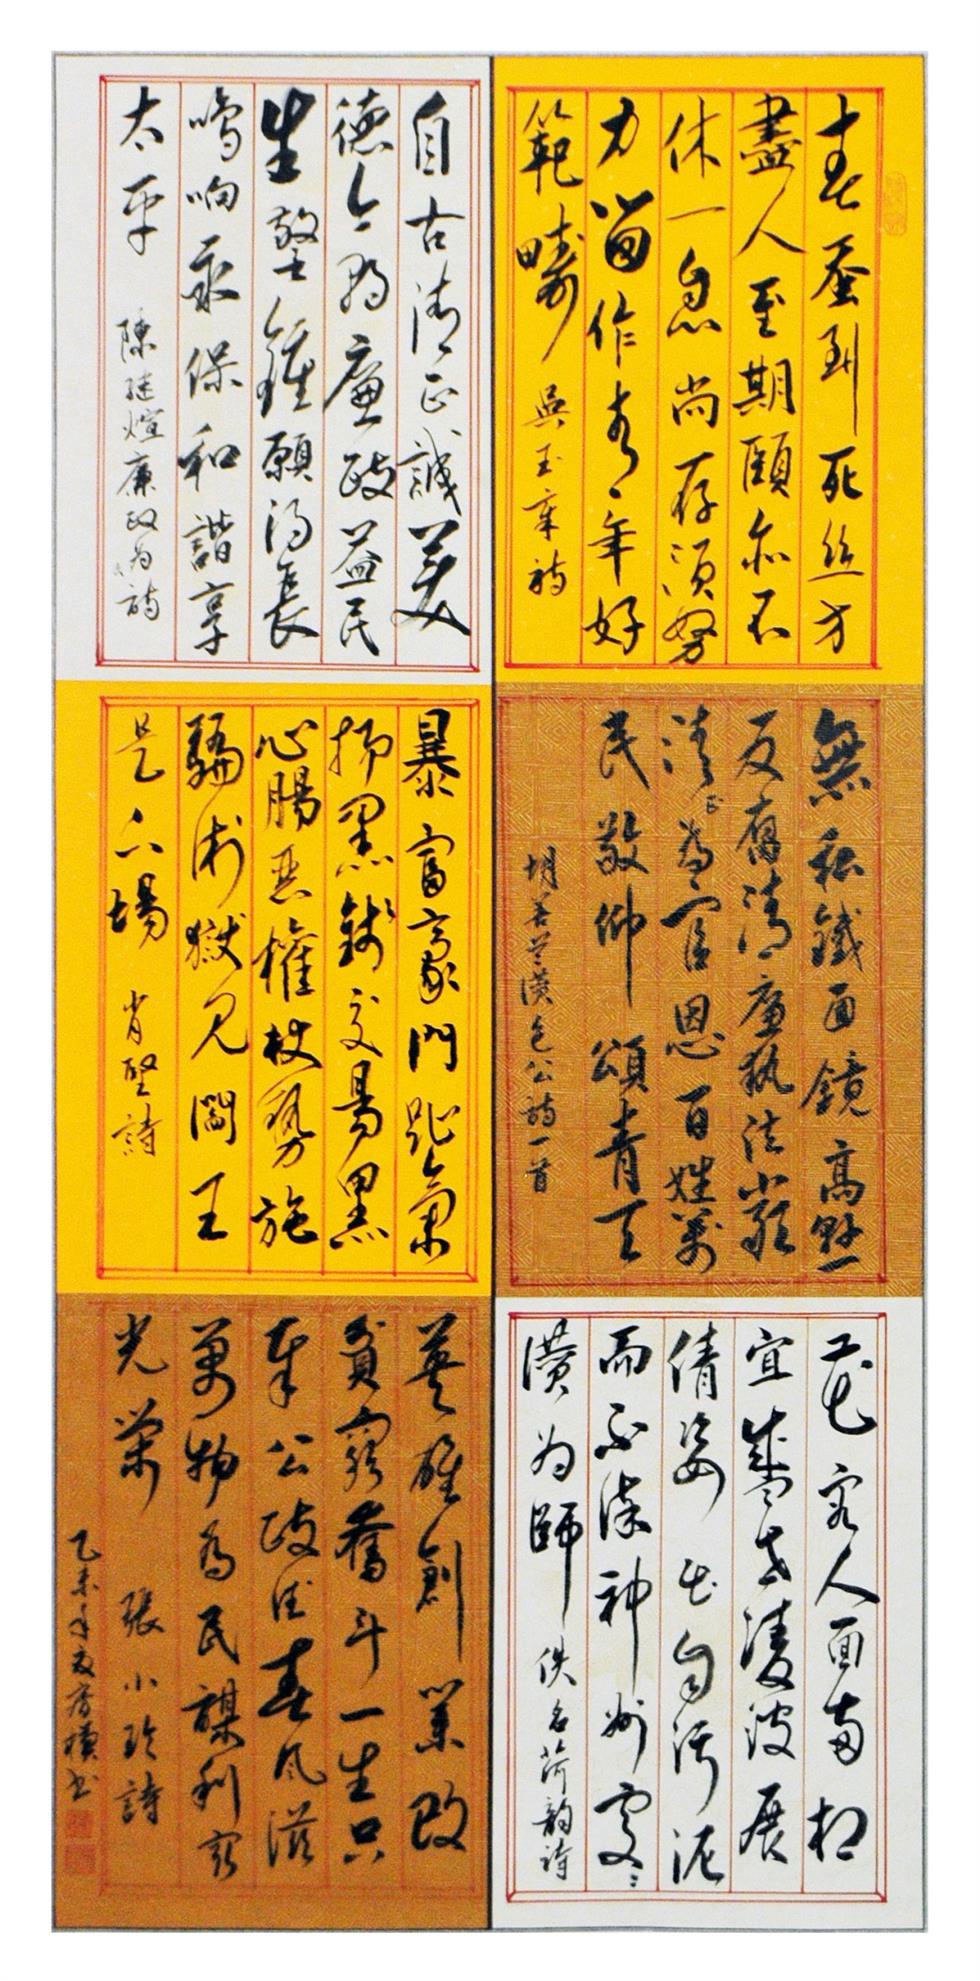 春蚕到死丝方
盡人至期頤亦不
休一息尚存須努
力留作青年好
範疇 吳玉章詩
無私鐵面鏡高懸
反腐清廉執法嚴
清正為官恩百姓萬
民敬仰頌青天
讚包公詩一首
花容人面两相
宜
倩姿出自污泥
而不染神州處處
讚为師 佚名荷韵詩
自古清正誠美
德今朝廉政益民
生警鐘願得長
鳴响永保和諧享
太平 陳继煊廉政为詩
暴富豪門趾氣
揚黑錢交易黑
心腸惡權杖勢施
騙術獄見閻王
是下場 肖堅詩
英雄創業改
貧窮奮斗一生只
奉公政德春風滋
萬物為民謀利
光榮 張小玲詩
乙未年